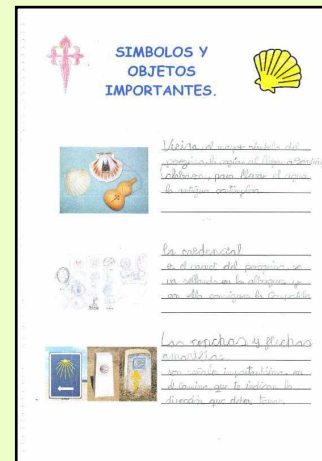 SIMBOLOS Y
OBJETOS
IMPORTANTES.
Vieira, el mayor símbolo del
peregrino la cogían al llegar a Santiago
calabaza, para llevar el agua
la antigua cantimplora.
La credencial
es el carnet del peregrino, se
va sellando en los albergues y
con ella consigues la Compostela
Las conchas y flechas
amarillas
son señales importantísimas en
el Camino que te indican la
dirección que debes tomar